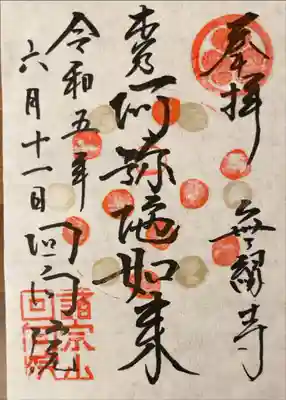 奉拝
無縁寺
本尊阿弥陀如来
回向院
令和五年
六月十一日
諸宗山
回向院